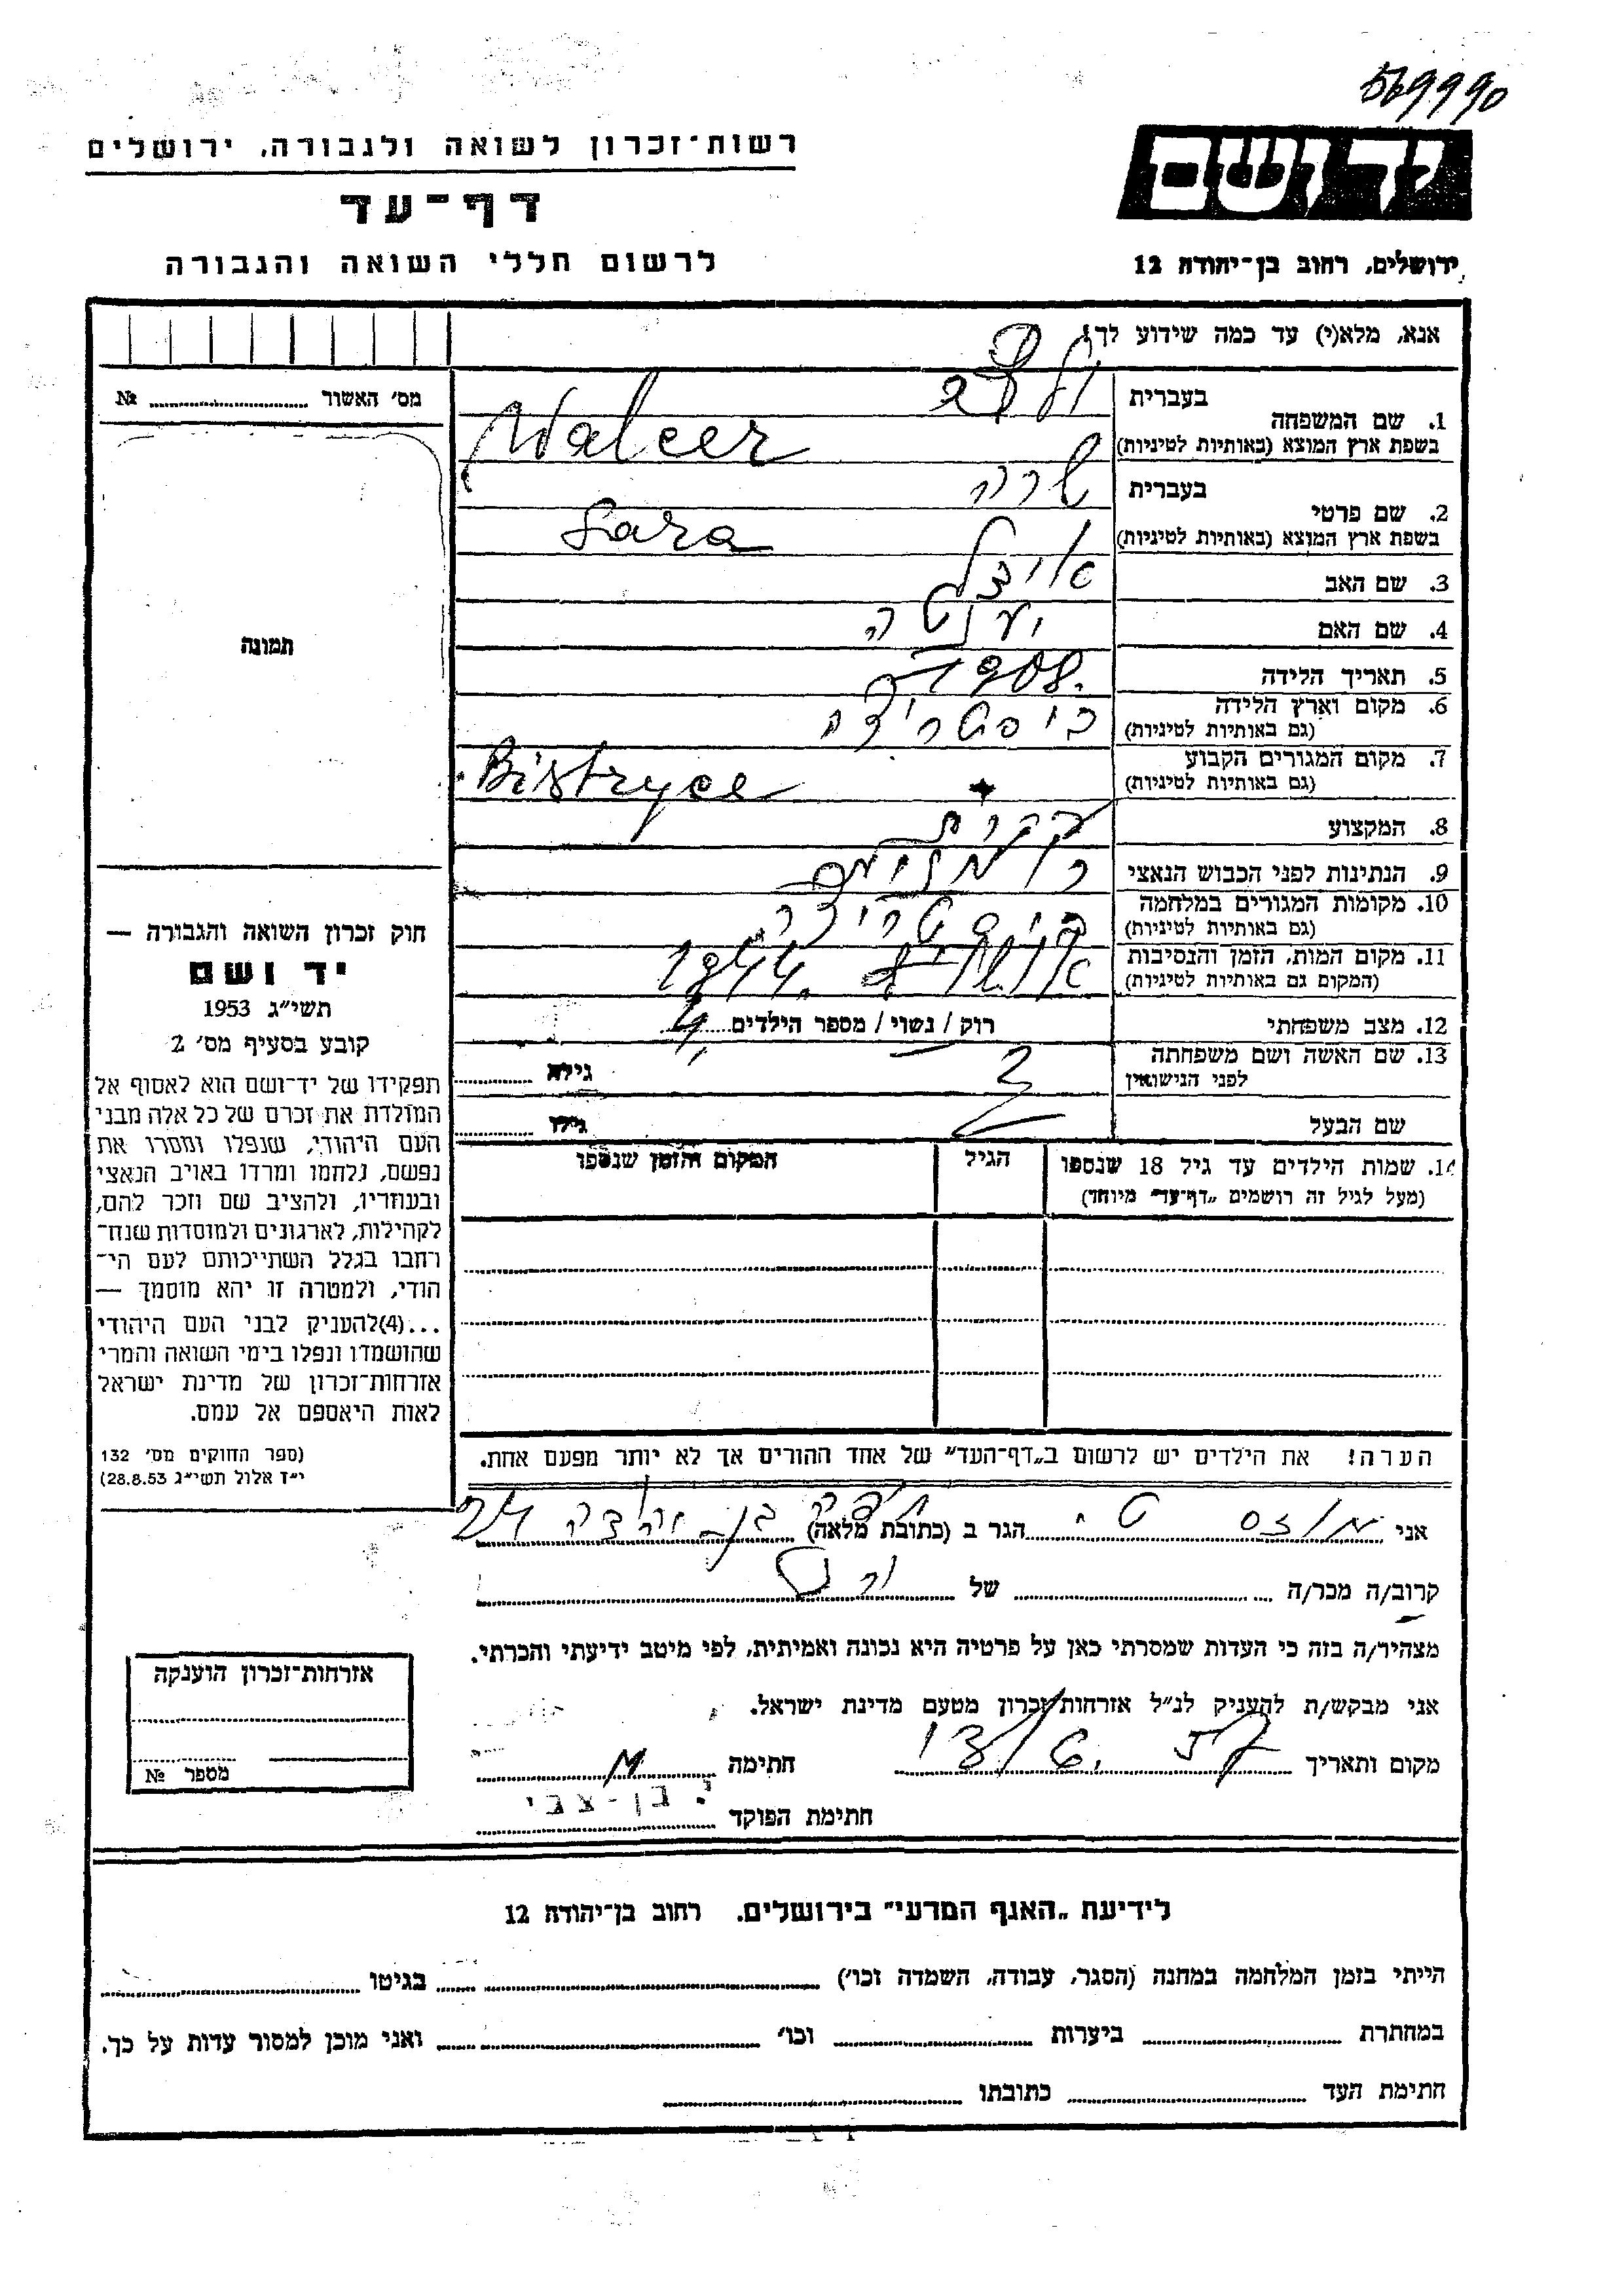 569990
רשות-זכרון לשואה ולגבורה, ירושלים
דף-עד
לרשום חללי השואה והגבורה
יד ושם
ירושלים, רחוב בן-יהודה 12
אנא, מלא(י) עד כמה שידוע לך!
מס' האשור № 
1. שם המשפחה
בעברית
בשפת ארץ המוצא (באותיות לטיניות) Walcer
2. שם פרטי
בעברית שרה
בשפת ארץ המוצא (באותיות לטיניות) Sara
3. שם האב אייזל
4. שם האם יענטה
5. תאריך הלידה 1908.
6. מקום וארץ הלידה ביסטריצה
(גם באותיות לטיניות)
7. מקום המגורים הקבוע Bistryce
(גם באותיות לטיניות)
8. המקצוע
9. הנתינות לפני הכבוש הנאצי
10. מקומות המגורים במלחמה ביסטריצה
(גם באותיות לטיניות)
11. מקום המות, הזמן והנסיבות 1944.
(המקום גם באותיות לטיניות)
12. מצב משפחתי רוק / נשוי / מספר הילדים 4
13. שם האשה ושם משפחתה גילה
לפני הנישואין
שם הבעל גילו
14. שמות הילדים עד גיל 18 שנספו הגיל המקום והזמן שנספו
(מעל לגיל זה רושמים "דף-עד" מיוחד)
הערה! את הילדים יש לרשום ב"דף-העד" של אחד ההורים אך לא יותר מפעם אחת.
תמונה
חוק זכרון השואה והגבורה —
יד ושם
תשי"ג 1953
קובע בסעיף מס' 2
תפקידו של יד-ושם הוא לאסוף אל
המולדת את זכרם של כל אלה מבני
העם היהודי, שנפלו ומסרו את
נפשם, נלחמו ומרדו באויב הנאצי
ובעוזריו, ולהציב שם וזכר להם,
לקהילות, לארגונים ולמוסדות שנח-
רחבו בגלל השתייכותם לעם הי-
הודי, ולמטרה זו יהא מוסמך —
...(4)להעניק לבני העם היהודי
שהושמדו ונפלו בימי השואה והמרי
אזרחות-זכרון של מדינת ישראל
לאות היאספם אל עמם.
(ספר החוקים מס' 132
י"ז אלול תשי"ג 28.8.53)
אני הגר ב (כתובת מלאה)
קרוב/ה מכר/ה של
מצהיר/ה בזה כי העדות שמסרתי כאן על פרטיה היא נכונה ואמיתית, לפי מיטב ידיעתי והכרתי.
אני מבקש/ת להעניק לנ"ל אזרחות-זכרון מטעם מדינת ישראל.
מקום ותאריך חתימה
חתימת הפוקד י. בן-צבי
אזרחות-זכרון הוענקה
מספר №
לידיעת "האגף המדעי" בירושלים, רחוב בן-יהודה 12
הייתי בזמן המלחמה במחנה (הסגר, עבודה, השמדה וכו') בגיטו
במחתרת ביערות וכו' ואני מוכן למסור עדות על כך.
חתימת העד כתובתו